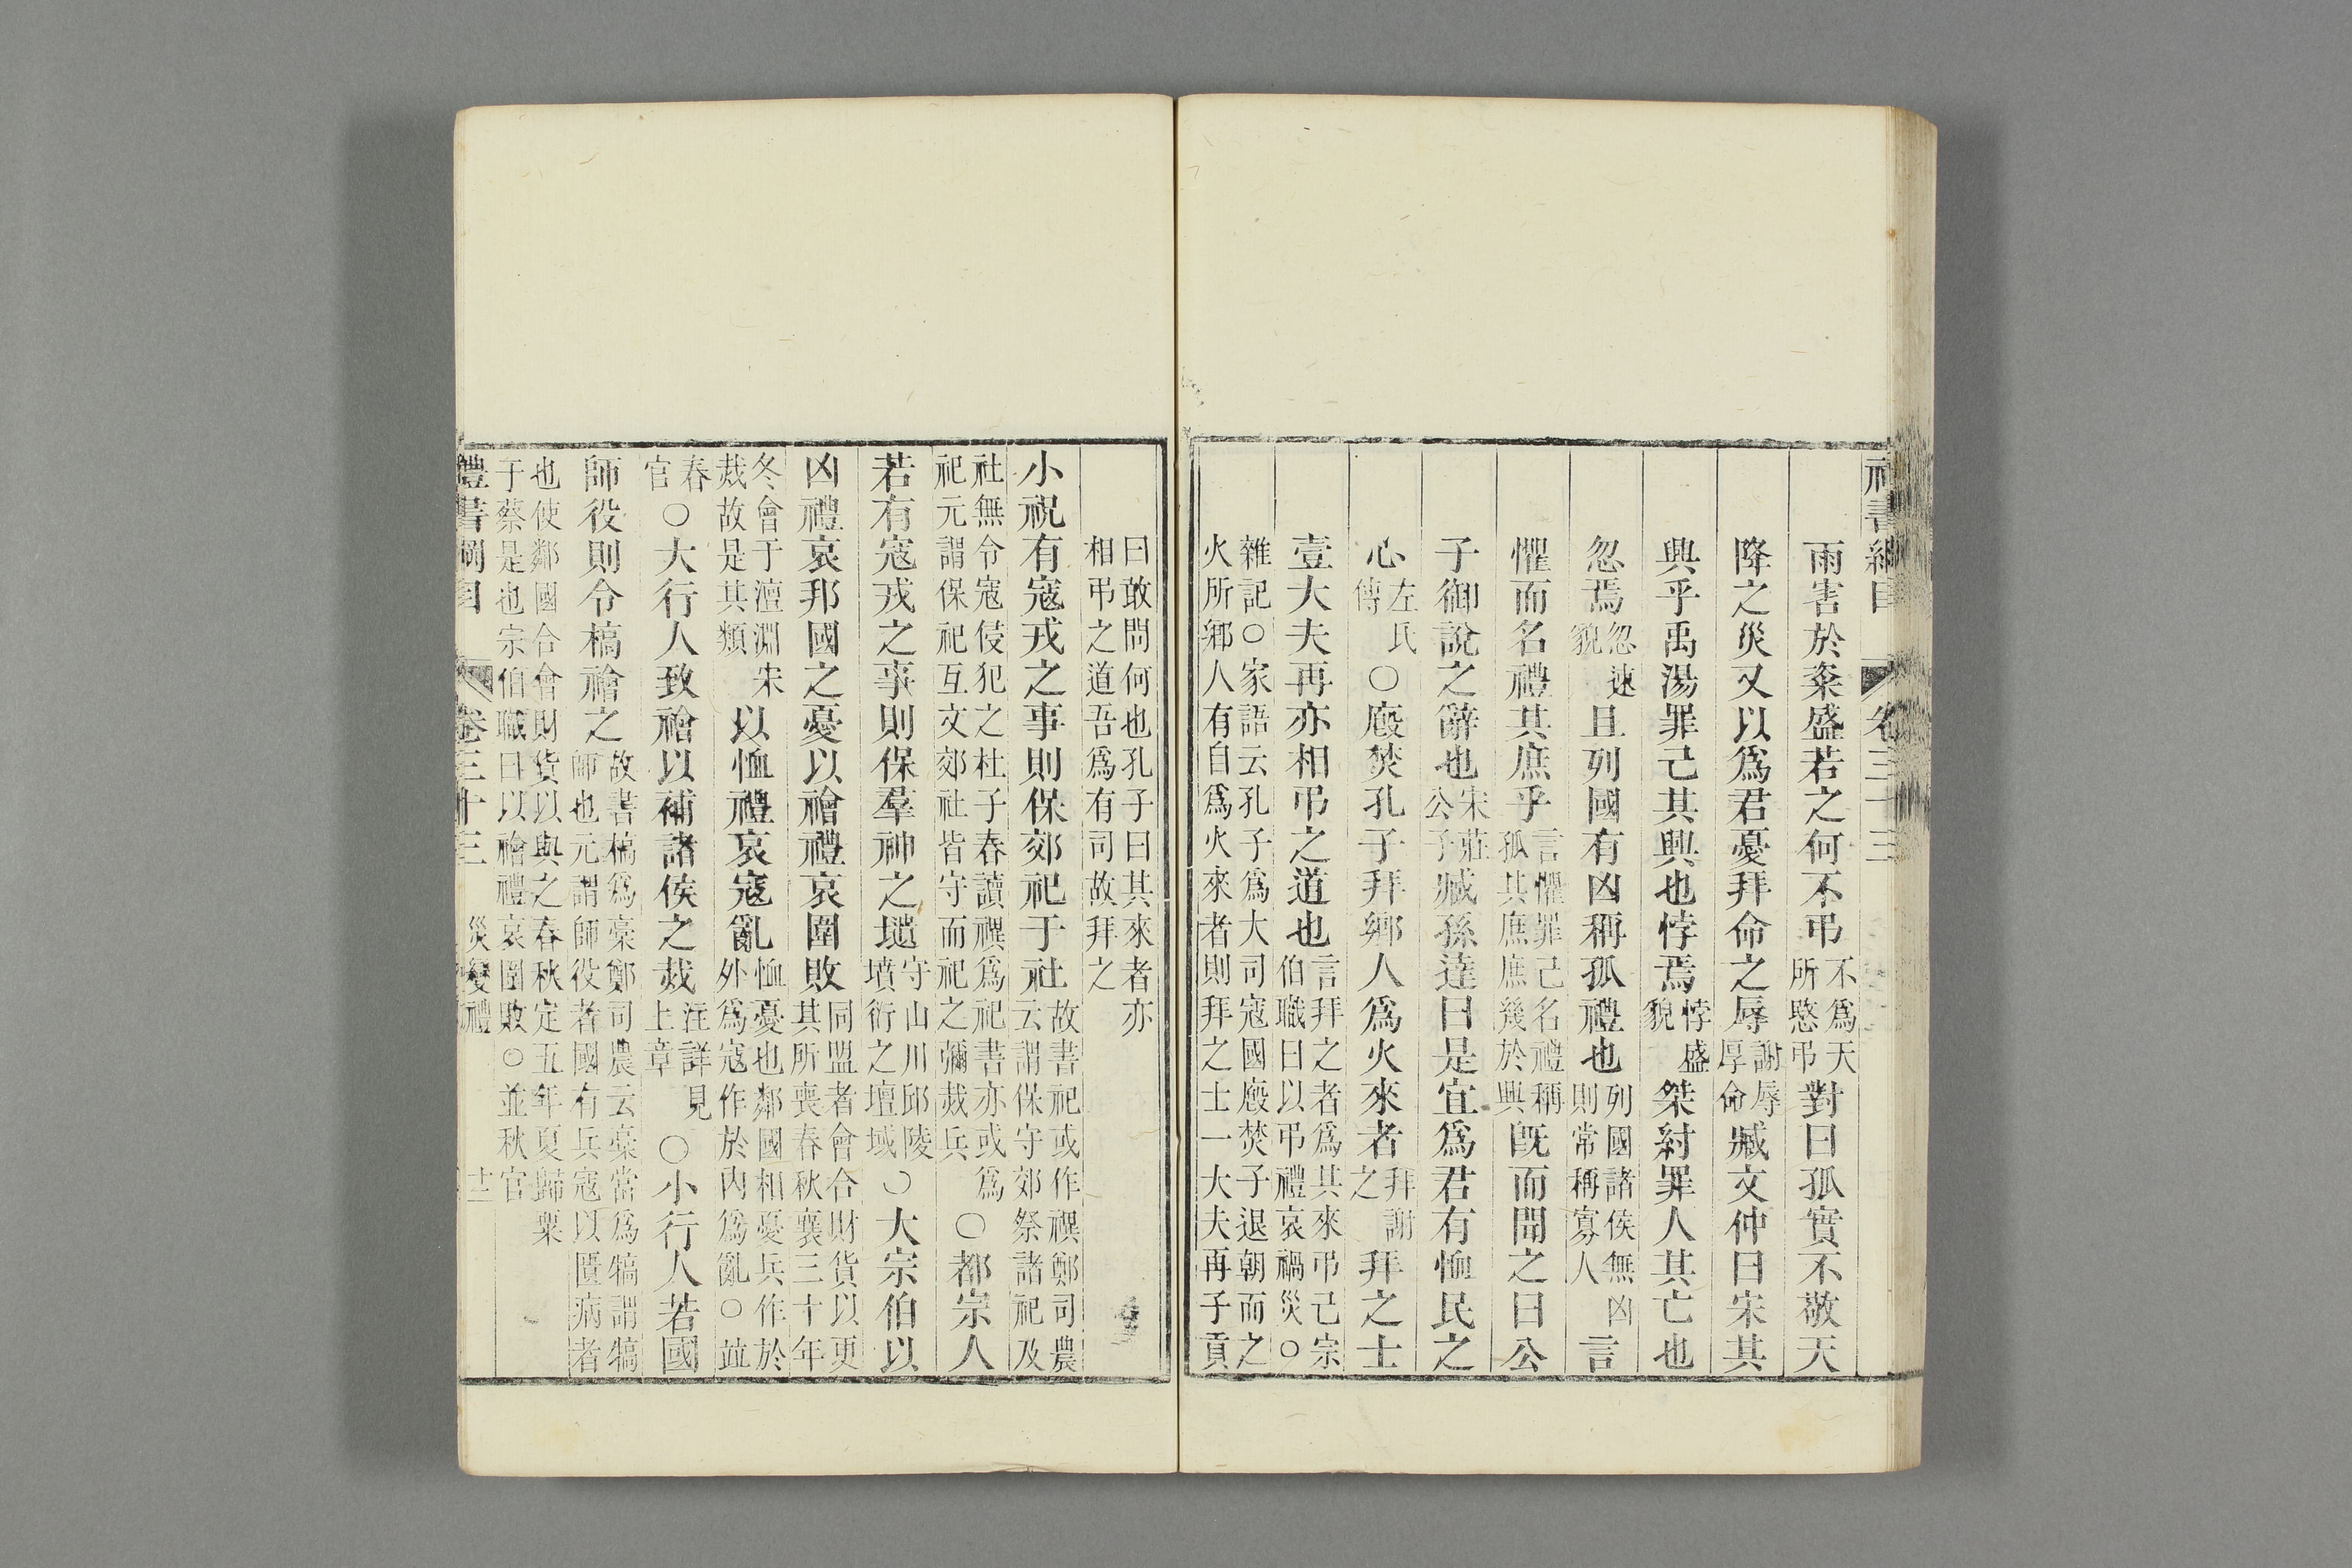 禮書綱目 卷三十三
雨害於粢盛若之何不弔不爲天所愍弔對曰孤實不敬天
降之災又以爲君憂拜命之辱謝辱厚命臧文仲曰宋其
興乎禹湯罪己其興也悖焉悖盛貌桀紂罪人其亡也
忽焉忽速貌且列國有凶稱孤禮也列國諸侯無凶則常稱寡人言
懼而名禮其庶乎言懼罪己名禮稱孤其庶庶幾於興旣而聞之曰公
子御說之辭也宋莊公子臧孫達曰是宜爲君有恤民之
心左氏傳○廐焚孔子拜鄉人爲火來者拜謝之拜之士
壹大夫再亦相弔之道也言拜之者爲其來弔己宗伯職曰以弔禮哀禍災○
雜記○家語云孔子爲大司寇國廐焚子退朝而之火所鄉人有自爲火來者則拜之士一大夫再子貢
曰敢問何也孔子曰其來者亦相弔之道吾爲有司故拜之
小祝有寇戎之事則保郊祀于社故書祀或作禩鄭司農云謂保守郊祭諸祀及
社無令寇侵犯之杜子春讀禩爲祀書亦或爲祀元謂保祀互文郊社皆守而祀之彌烖兵○都宗人
若有寇戎之事則保羣神之壝守山川邱陵墳衍之壇域○大宗伯以
凶禮哀邦國之憂以禬禮哀圍敗同盟者會合財貨以更其所喪春秋襄三十年
冬會于澶淵宋烖故是其類以恤禮哀寇亂恤憂也鄰國相憂兵作於外爲寇作於內爲亂○竝
春官○大行人致禬以補諸侯之烖注詳見上章○小行人若國
師役則令槁禬之故書槁爲槀鄭司農云槀當爲犒謂犒師也元謂師役者國有兵寇以匱病者
也使鄰國合會財貨以與之春秋定五年夏歸粟于蔡是也宗伯職曰以禬禮哀圍敗○並秋官
禮書綱目 卷三十三 災變禮